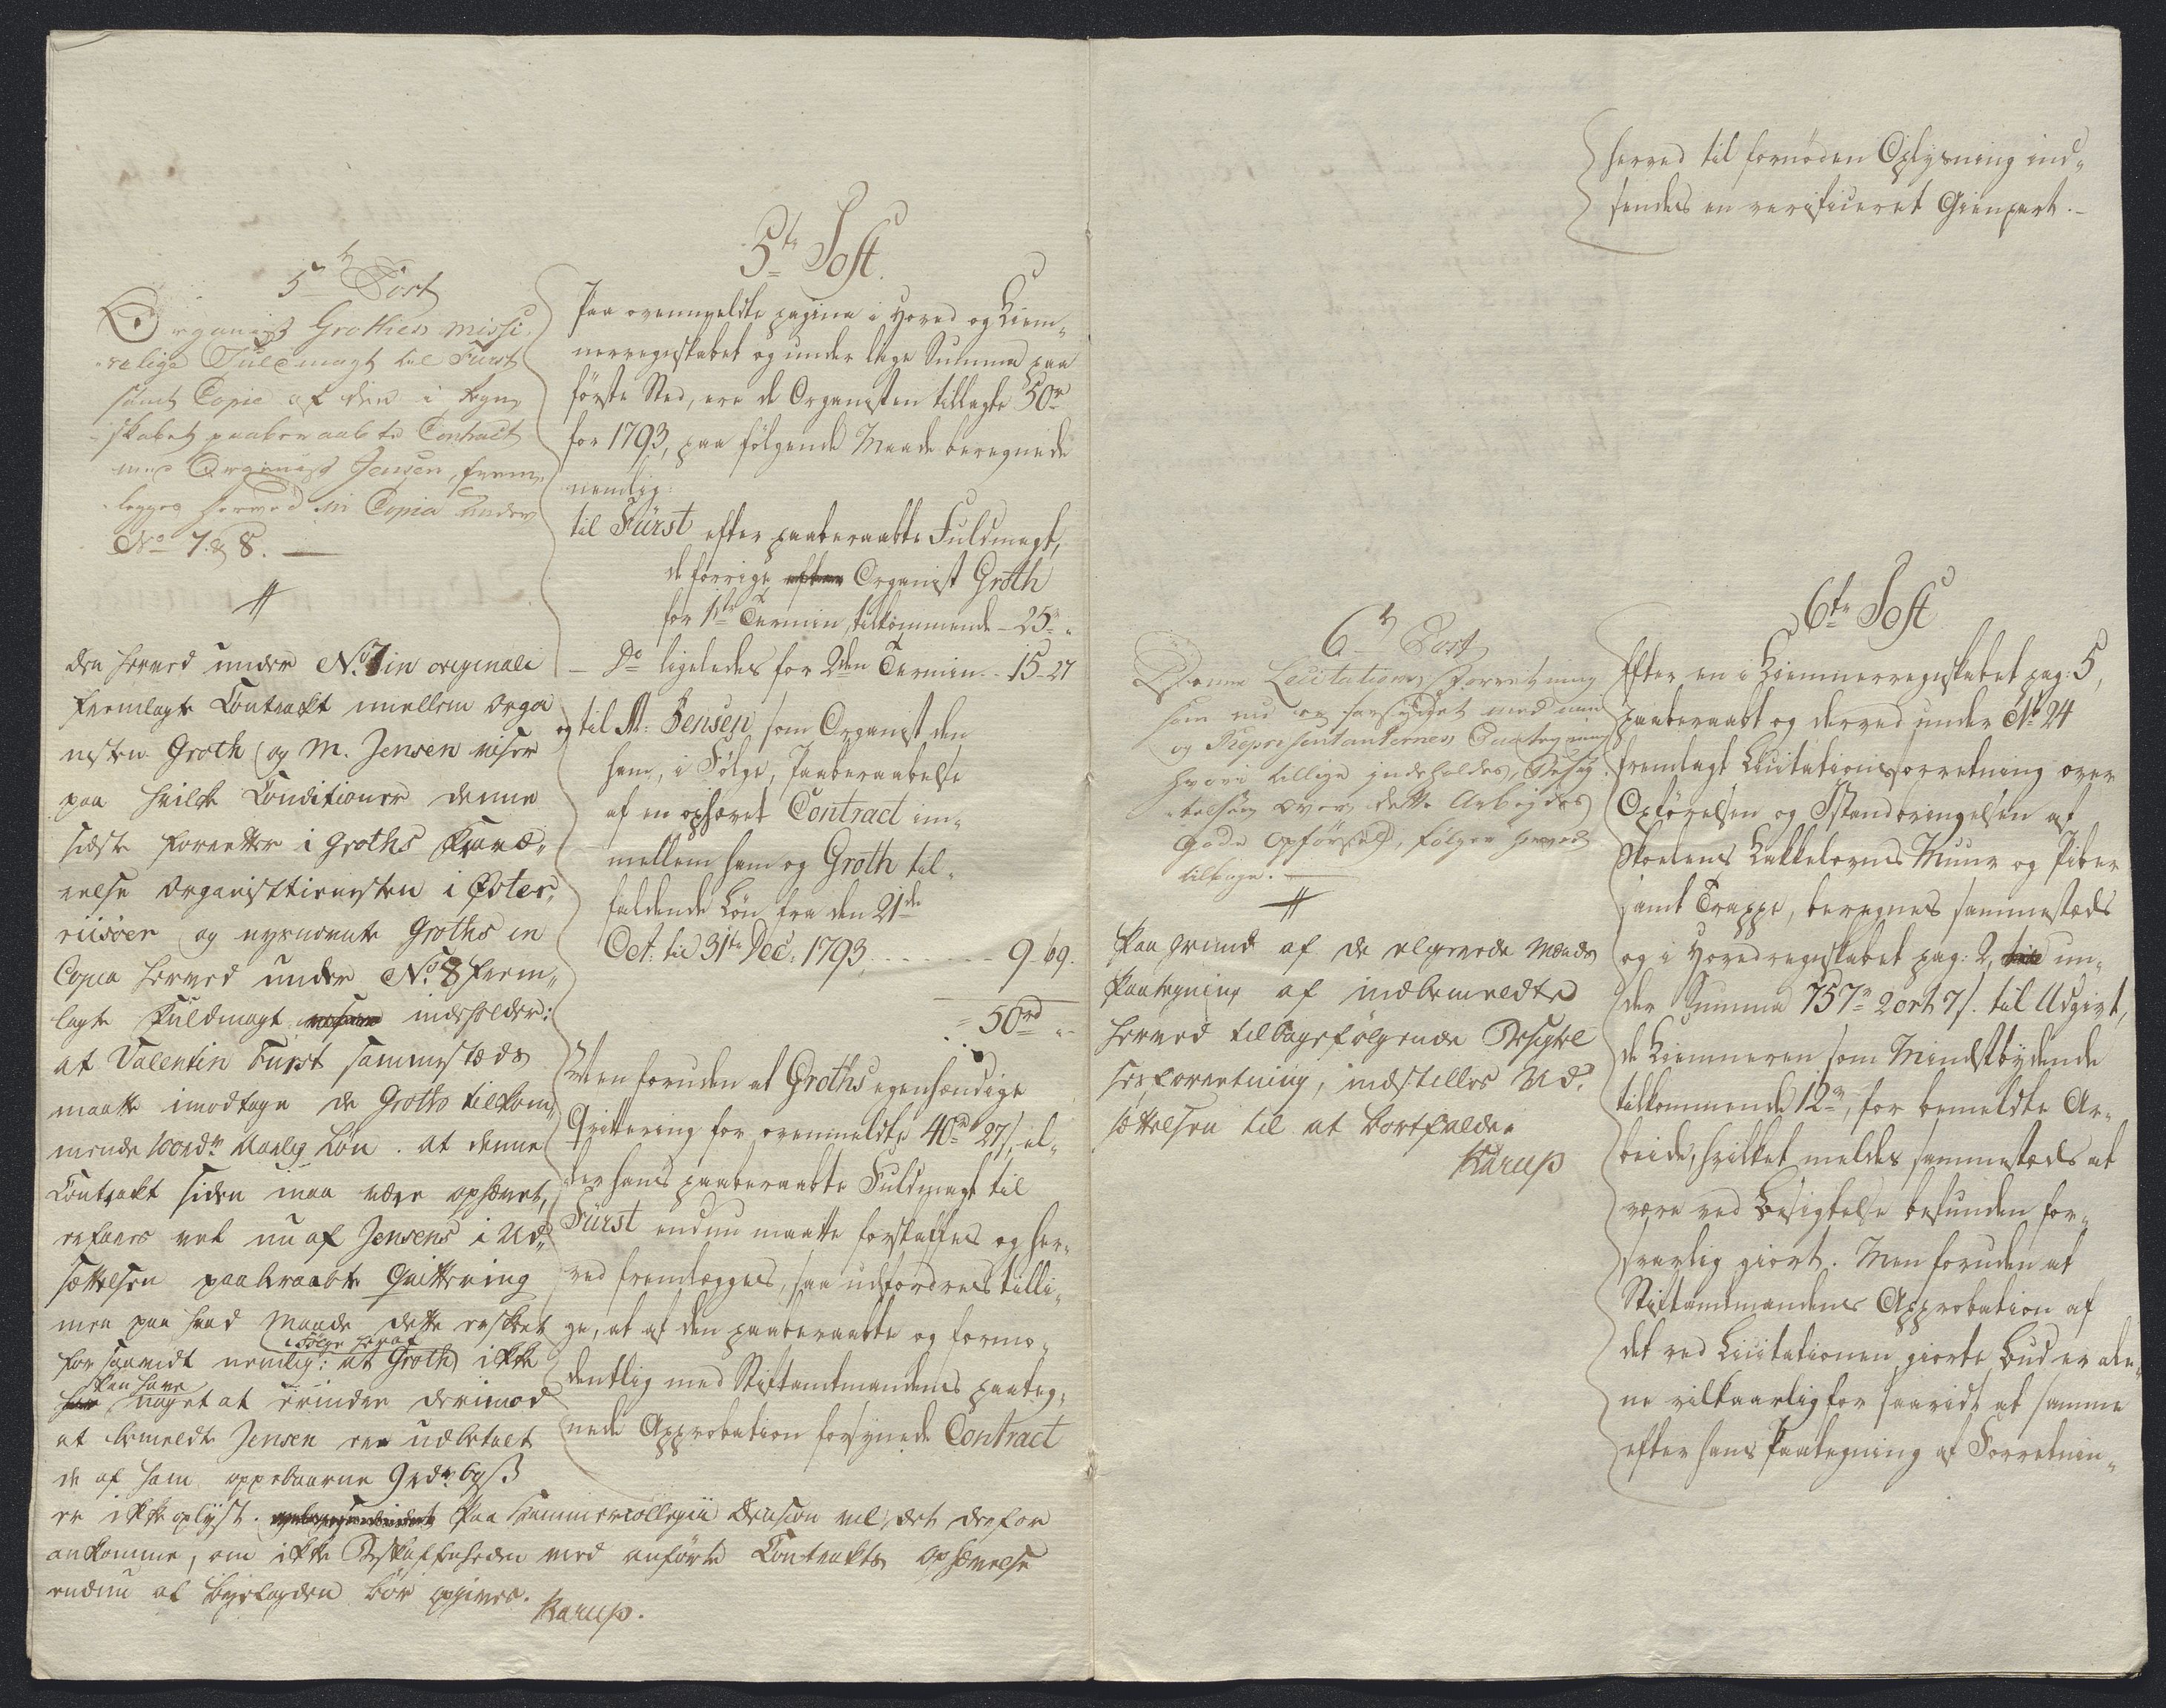 5te Post
Organist Grothes missi-
velige Fuldmagt til Fürst
samt Copie af den i Regn-
skabet paaberaabte Contract
med Organist Jensen, frem-
legges herved in Copia under
No 7 & 8.
den herved under No. 7 in originali
fremlagte Contrackt imellem Orga
nisten Groth og M. Jensen viser
paa hvilcke Conditioner denne
sidste forretter i Groths Fravæ-
relse Organisttienesten i Øster-
riisøer og nysnevnte Groths in
Copia herved under No. 8 frem-
lagte Fuldmagt indeholder:
at Valentin Fürst sammestæds
maatte imodtage de Groth tilkom-
mende 100rdr Aarlig Løn. at denne
Contrakt siden maa være ophævet,
erfares vel nu af Jensens i Ud-
sættelsen paabraabte Quittering
men paa hvad Maade dette er skeet
forsaavidt nemlig: at Groth i Følge heraf ikke
kan have noget at erindre derimod
at bemeldte Jensen er udbetalt
de af ham oppebaarne 9rdr 69s
er ikke oplyst. Paa Kammercollegii Decision vil det derfor
ankomme, om ikke Beskaffenheden med anførte Contrakts Ophævelse
endnu af Byefogden bør opgives.
Karup.
5te Post.
Paa ovenmeldte pagina i Hoved og Kiem-
nerregnskabet og under lige Summa paa
første Sted, ere de Organisten tillagte 50r
for 1793, paa følgende Maade beregnede
nemlig:
til Fürst efter paaberaabte Fuldmagt,
de forrige Organist Groth
for 1te Termin tilkommende - 25r "
- Do ligeledes for 2den Termin - 15 - 27
og til M: Jensen, som Organist den
ham, i Følge, Paaberaabelse
af en ophævet Contract im-
mellem ham og Groth til-
faldende Løn fra den 21de
Oct: til 31te Dec: 1793 - - - 9. 69.
= 50rd "
Men foruden at Groths egenhændige
Qvittering for ovenmeldte 40rd 27s, el-
ler hans paaberaabte Fuldmagt til
Fürst endnu maatte forskaffes og her-
ved fremlægges, saa udfordres tilli-
ge, at af den paaberaabte og formo-
dentlig med Stiftamtmandens paateg-
nede Approbation forsynede Contract
herved til fornøden Oplysning ind-
sendes en verificeret Gienpart.-
6te Post
Denne Licitations Forretning
som nu er forsynet med min
og Repræsentanternes Paategning
hvori tillige indeholdes, Besig-
telsen over dette Arbejdes
gode Opførsel, følger herved
tilbage.
Paa Grund af de eligerede Mænds
Paategning af indbemeldte
herved tilbagefølgende Besigtel
sesforretning, indstilles Ud-
sættelsen til at bortfalde.
Karup
6te Post
Efter en i Kiemnerregnskabet pag: 5,
paaberaabt og derved under No 24
fremlagt Licitationsforretning over
Opførelsen og Istandbringelsen af
Skoelens Kakkelovns Muur og Piber
samt Trappe, beregnes sammestæds
og i Hovedregnskabet pag: 2, un-
der Summa 757r 2ort 7s. til Udgivt,
de Kiemneren som Mindstbydende
tilkommende 12r, for bemeldte Ar-
beide, hvilket meldes sammestæds at
være ved Besigtelse befunden for-
svarlig giort. Men foruden at
Stiftamtmandens Approbation af
det ved Licitationen giorte Bud er ale-
ne vilkaarlig for saavidt at samme
efter hans Paategning af Forretnin-